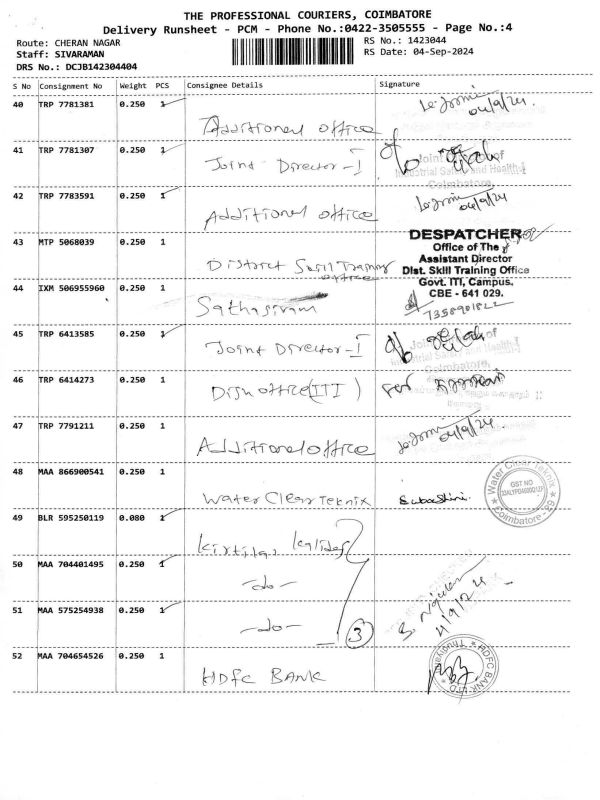 THE PROFESSIONAL COURIERS, COIMBATORE
Delivery Runsheet - PCM - Phone No.:0422-3505555 - Page No.:4
Route: CHERAN NAGAR
RS No.: 1423044
Staff: SIVARAMAN
RS Date: 04-Sep-2024
DRS No.: DCJB142304404
S No Consignment No Weight PCS Consignee Details Signature
40 TRP 7781381 0.250 1
04/9/24.
Additional office
41 TRP 7781307 0.250 1
Joint Director-I
Joint of
Industrial Safety and Health-I
Coimbatore
42 TRP 7783591 0.250 1
04/9/24
Additional office
43 MTP 5068039 0.250 1
District Skill Training
office
DESPATCHER
Office of The
Assistant Director
Dist. Skill Training Office
Govt. ITI, Campus.
CBE - 641 029.
44 IXM 506955960 0.250 1
Sathasivam
7358901822
45 TRP 6413585 0.250 1
Joint Director-I
Joint of
Industrial Safety and Health-I
Coimbatore
46 TRP 6414273 0.250 1
office (III)
47 TRP 7791211 0.250 1
04/9/24
Additional office
48 MAA 866900541 0.250 1
Water Clear Teknix
Subashini
Water Clear Teknix
GST NO
Coimbatore - 29
49 BLR 595250119 0.080 1
50 MAA 704401495 0.250 1
-do-
51 MAA 575254938 0.250 1
-do-
3
4/9/24
52 MAA 704654526 0.250 1
HDFC BANK
HDFC BANK LTD